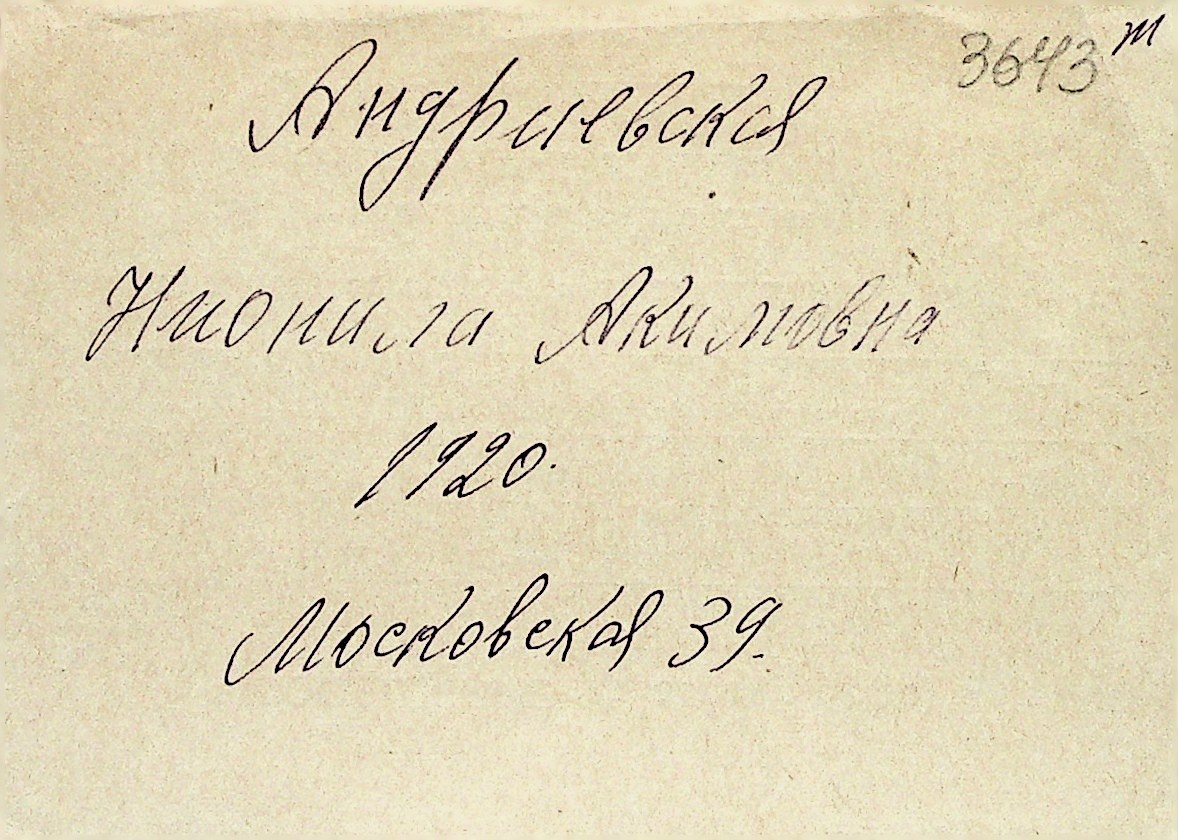 3643 т
Андриевская
Нионила Акимовна
1920.
Московская 39.